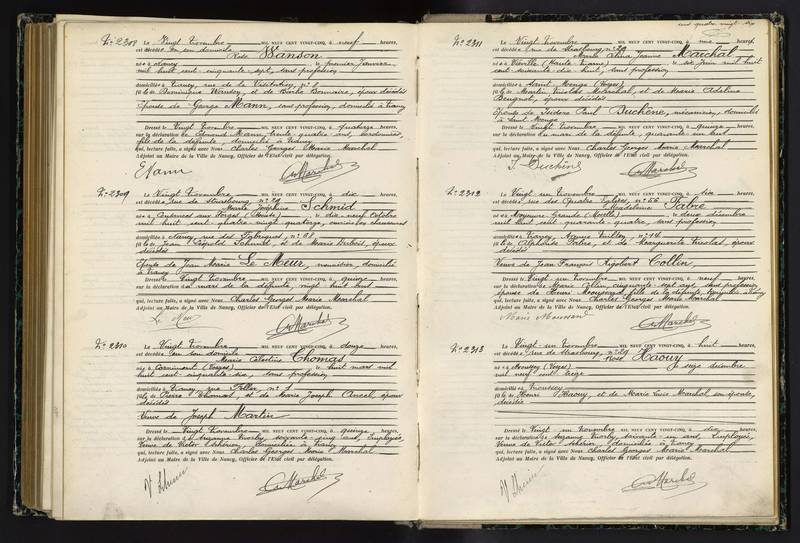 N° 2308
Le Vingt Novembre MIL NEUF CENT VINGT-CINQ, à neuf heures,
est décédée en son domicile Rose Wanson
née à Nancy le premier Janvier
mil huit cent cinquante-sept, sans profession
domiciliée à Nancy, rue de la Visitation, n° 8
fille de Dominique Wanson, et de Barbe époux décédés
Épouse de George Mann, sans profession, domicilié à Nancy
Dressé le Vingt Novembre MIL NEUF CENT VINGT-CINQ, à quatorze heures,
sur la déclaration de Edmond Mann, trente-quatre ans,
fils de la défunte, domicilié à Nancy
qui, lecture faite, a signé avec Nous Charles Georges Marie Marchal
Adjoint au Maire de la Ville de Nancy, Officier de l'Etat civil par délégation.
E Mann
N° 2309
Le Vingt Novembre MIL NEUF CENT VINGT-CINQ, à dix heures,
est décédée rue de Strasbourg n° 29
Marie Joséphine Schmid
née à Cousances aux Forges (Meuse) le dix-neuf Octobre
mil huit cent quatre-vingt quatorze,
domiciliée à Nancy, rue des Fabriques, n° 68
fille de Jean Léopold Schmidt, et de Marie Dubois, époux
décédés
Épouse de Jean Marie Le Meur, domicilié
à Nancy
Dressé le Vingt Novembre MIL NEUF CENT VINGT-CINQ, à quinze heures,
sur la déclaration du mari de la défunte, vingt huit ans
qui, lecture faite, a signé avec Nous Charles Georges Marie Marchal
Adjoint au Maire de la Ville de Nancy, Officier de l'Etat civil par délégation.
Le Meur
N° 2310
Le Vingt Novembre MIL NEUF CENT VINGT-CINQ, à douze heures,
est décédée en son domicile
Marie Célestine Thomas
née à Cornimont (Vosges) le huit mars mil
huit cent cinquante-dix, sans profession
domiciliée à Nancy rue Feller n° 1
fille de Pierre Thomas, et de Marie Joseph Ancel, époux
décédés
Veuve de Joseph Martin
Dressé le Vingt Novembre MIL NEUF CENT VINGT-CINQ, à quinze heures,
sur la déclaration de Suzanne soixante cinq ans, employée,
Veuve de Victor domiciliée à Nancy
qui, lecture faite, a signé avec Nous Charles Georges Marie Marchal
Adjoint au Maire de la Ville de Nancy, Officier de l'Etat civil par délégation.
N° 2311
Le Vingt Novembre MIL NEUF CENT VINGT-CINQ, à onze heures,
est décédée rue de Strasbourg n° 29
Marie Alina Jeanne Maréchal
née à Viéville (Haute Marne) le six Juin mil huit
cent soixante-dix-huit, sans profession
domiciliée à Saint (Vosges)
fille de Martin Nicolas Maréchal, et de Marie Adeline
Beugnot, époux décédés
Épouse de Isidore Paul Duchêne, mécanicien, domicilié
à Saint
Dressé le Vingt Novembre MIL NEUF CENT VINGT-CINQ, à quinze heures,
sur la déclaration du mari de la défunte, quarante un huit
qui, lecture faite, a signé avec Nous Charles Georges Marie Marchal
Adjoint au Maire de la Ville de Nancy, Officier de l'Etat civil par délégation.
Duchêne
N° 2312
Le Vingt un Novembre MIL NEUF CENT VINGT-CINQ, à dix heures,
est décédée rue des Quatre Églises, n° 56
Madeleine Fabre
née à Moyeuvre-Grande (Moselle) le deux décembre
mil huit cent quarante-quatre, sans profession
domiciliée à Nancy, avenue Milton, n° 14
fille de Alphonse Fabre, et de Marguerite Nicolas, époux
décédés
Veuve de Jean François Rigobert Collin
Dressé le Vingt-un Novembre MIL NEUF CENT VINGT-CINQ, à neuf heures,
sur la déclaration de Marie Collin, cinquante-sept ans, sans profession,
épouse de Henri fille de la défunte, domiciliée à Nancy
qui, lecture faite, a signé avec Nous Charles Georges Marie Marchal
Adjoint au Maire de la Ville de Nancy, Officier de l'Etat civil par délégation.
Marie
N° 2313
Le Vingt-un Novembre MIL NEUF CENT VINGT-CINQ, à huit heures,
est décédée rue de Strasbourg, n° 29
Rose Haouy
née à Moussey (Vosges) le seize décembre
mil neuf cent treize
domiciliée à Moussey
fille de Henri Haouy, et de Marie Lucie Marchal son épouse,
décédée
Dressé le Vingt un Novembre MIL NEUF CENT VINGT-CINQ, à dix heures,
sur la déclaration de Suzanne soixante cinq ans, Employée,
Veuve de Victor domiciliée à Nancy
qui, lecture faite, a signé avec Nous Charles Georges Marie Marchal
Adjoint au Maire de la Ville de Nancy, Officier de l'Etat civil par délégation.